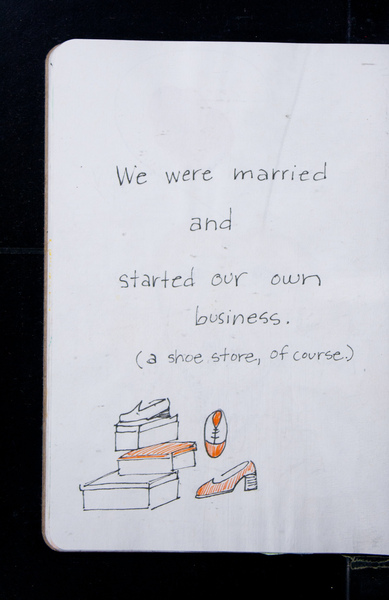 We were married
and
started our own
business.
(a shoe store, of course.)